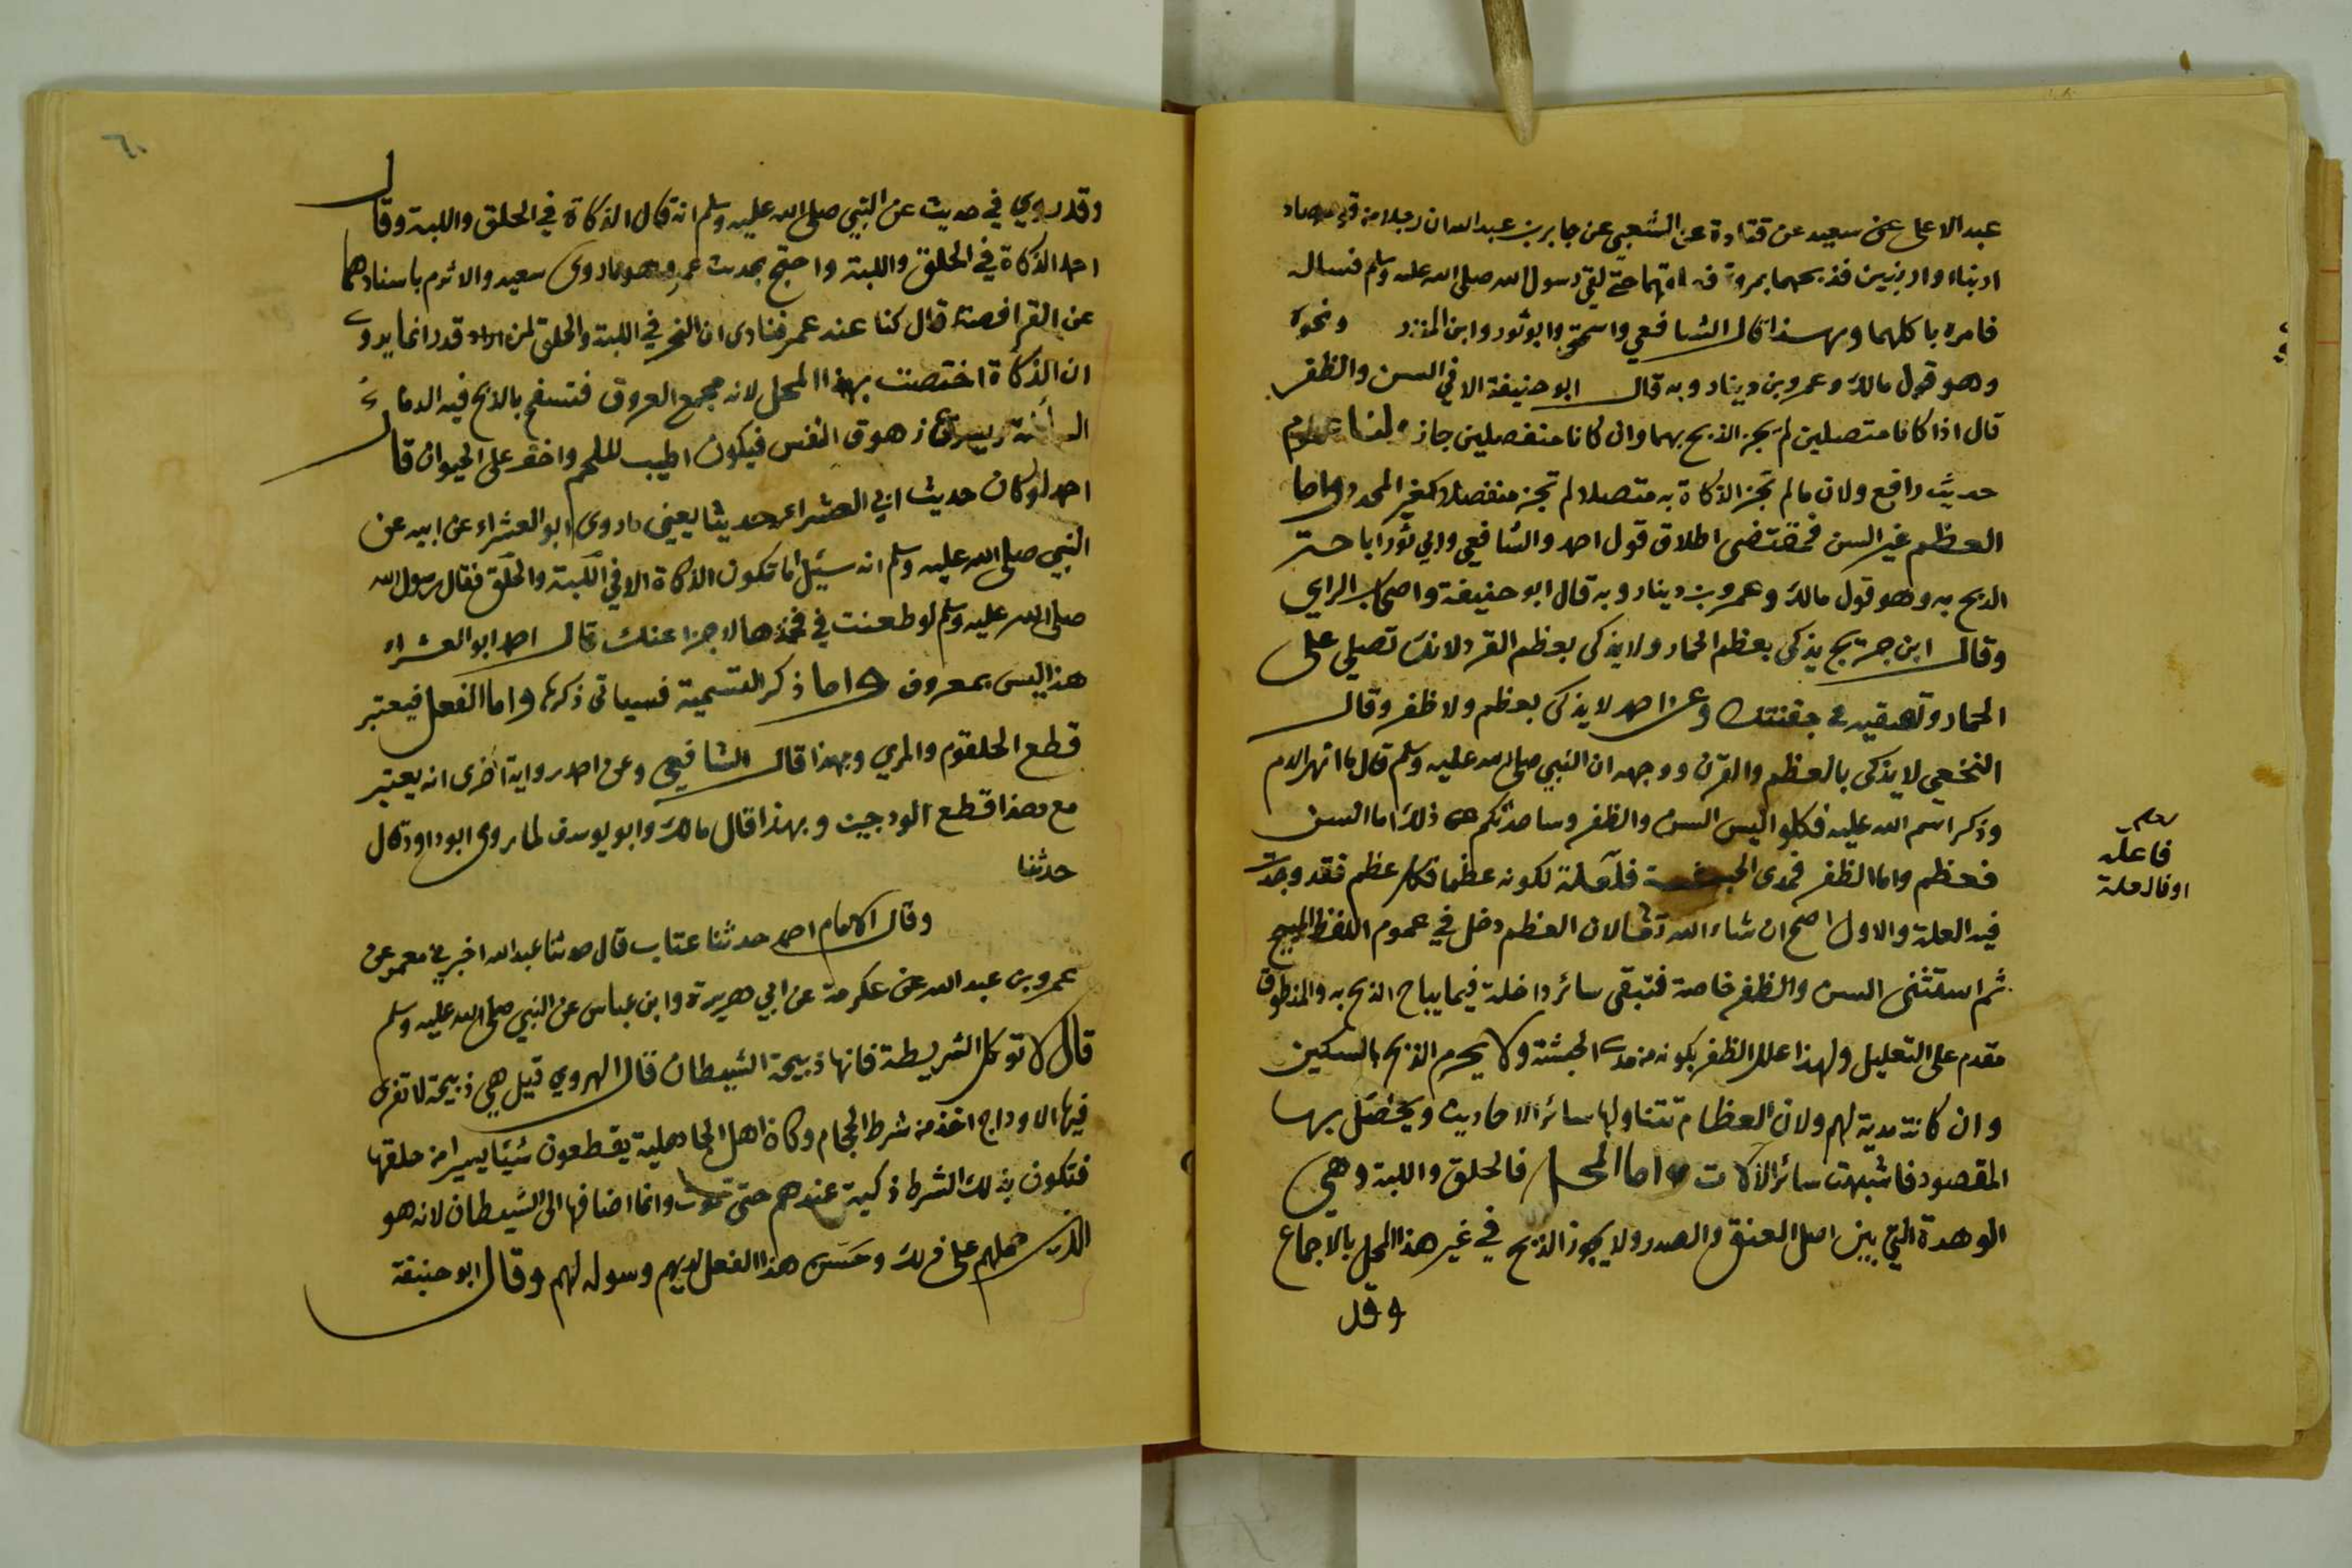 عبد الاعلى عن سعيد عن قتادة عن الشعبي عن جابر بن عبد الله ان رجلا من قومه صاد
ارنبا او ارنبين فذبحهما بمروة حتى لقي رسول الله صلى الله عليه وسلم فسال
فامره باكلهما وبهذا قال الشافعي واسحق وابو ثور وابن المنذر ونحوه
وهو قول مالك وعمرو بن دينار وبه قال ابو حنيفة الا في السن والظفر
قال اذا كانا متصلين لم يجز الذبح بهما وان كانا منفصلين جاز ولنا عموم
حديث رافع ولان ما لم تجز الذكاة به متصلا لم تجز منفصلا كغير المحدد واما
العظم غير السن فمقتضى اطلاق قول احمد والشافعي وابي ثور اباحة
الذبح به وهو قول مالك وعمرو بن دينار وبه قال ابو حنيفة واصحاب الراي
وقال ابن جريج يذكى بعظم الحمار ولا يذكى بعظم القرد لانك تصلي على
الحمار وتسقيه في جفنتك وعن احمد لا يذكى بعظم ولا ظفر وقال
النخعي لا يذكى بالعظم والقرن ووجهه ان النبي صلى الله عليه وسلم قال ما انهر الدم
وذكر اسم الله عليه فكلوا ليس السن والظفر وساحدثكم عن ذلك اما السن
فعظم واما الظفر فمدى الحبشة فعلله لكونه عظما فكل عظم فقد وجدت
فيه العلة والاول اصح ان شاء الله تعالى لان العظم دخل في عموم اللفظ المبيح
ثم استثنى السن والظفر خاصة فتبقى سائر داخلة فيما يباح الذبح به والمنطوق
مقدم على التعليل ولهذا علل الظفر بكونه من مدى الحبشة ولا يحرم الذبح بالسكين
وان كانت مدية لهم ولان العظام تتناولها سائر الاحاديث ويحصل بها
المقصود فاشبهت سائر الآلات واما المحل فالحلق واللبة وهي
الوهدة التي بين اصل العنق والصدر ولا يجوز الذبح في غير هذا المحل بالاجماع
وقد
فاعله
او فالعلة
٦٠
وقد روي في حديث عن النبي صلى الله عليه وسلم انه قال الذكاة في الحلق واللبة وقال
احمد الذكاة في الحلق واللبة واحتج بحديث عمر وهو ما روى سعيد والاثرم باسنادهما
عن الفرافصة قال كنا عند عمر فنادى ان النحر في اللبة والحلق لمن قدر انما يروى
ان الذكاة اختصت بهذا المحل لانه مجمع العروق فتسفح بالذبح فيه الدماء
السائلة ويسرع زهوق النفس فيكون اطيب للحم واخف على الحيوان قال
احمد لو كان حديث ابي العشراء حديثا يعني ما روى ابو العشراء عن ابيه عن
النبي صلى الله عليه وسلم انه سئل اما تكون الذكاة الا في اللبة والحلق فقال رسول الله
صلى الله عليه وسلم لو طعنت في فخذها لاجزا عنك قال احمد ابو العشراء
هذا ليس بمعروف واما ذكر التسمية فسياتي ذكرها واما الفعل فيعتبر
قطع الحلقوم والمري وبهذا قال الشافعي وعن احمد رواية اخرى انه يعتبر
مع هذا قطع الودجين وبهذا قال مالك وابو يوسف لما روى ابو داود قال
حدثنا
وقال الامام احمد حدثنا عتاب قال حدثنا عبد الله اخبرني معمر عن
عمرو بن عبد الله عن عكرمة عن ابي هريرة وابن عباس عن النبي صلى الله عليه وسلم
قال لا توكل الشريطة فانها ذبيحة الشيطان قال الهروي قيل هي ذبيحة لا تفرى
فيها الاوداج اخذ من شرط الحجام وكان اهل الجاهلية يقطعون شيئا يسيرا من حلقها
فتكون بذلك الشرط ذكية عندهم حتى تموت وانما اضافها الى الشيطان لانه هو
الذي حملهم على ذلك وحسن هذا الفعل لديهم وسوله لهم وقال ابو حنيفة